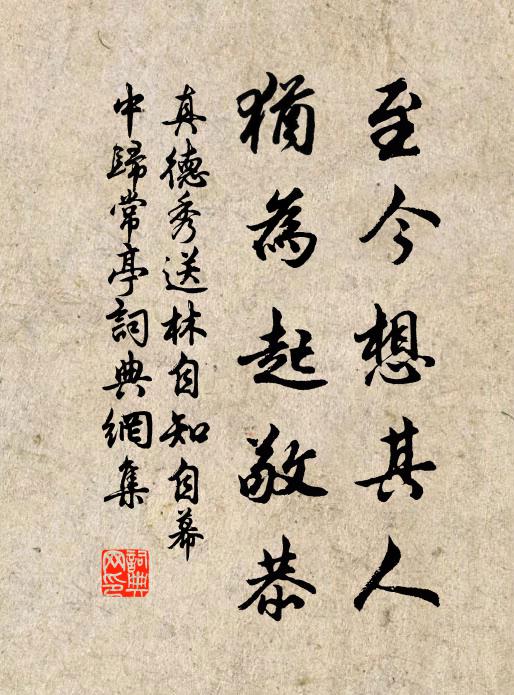 至今想其人
猶為起敬恭
真德秀送林自知自幕
中歸常亭詞典網集
詞典网印